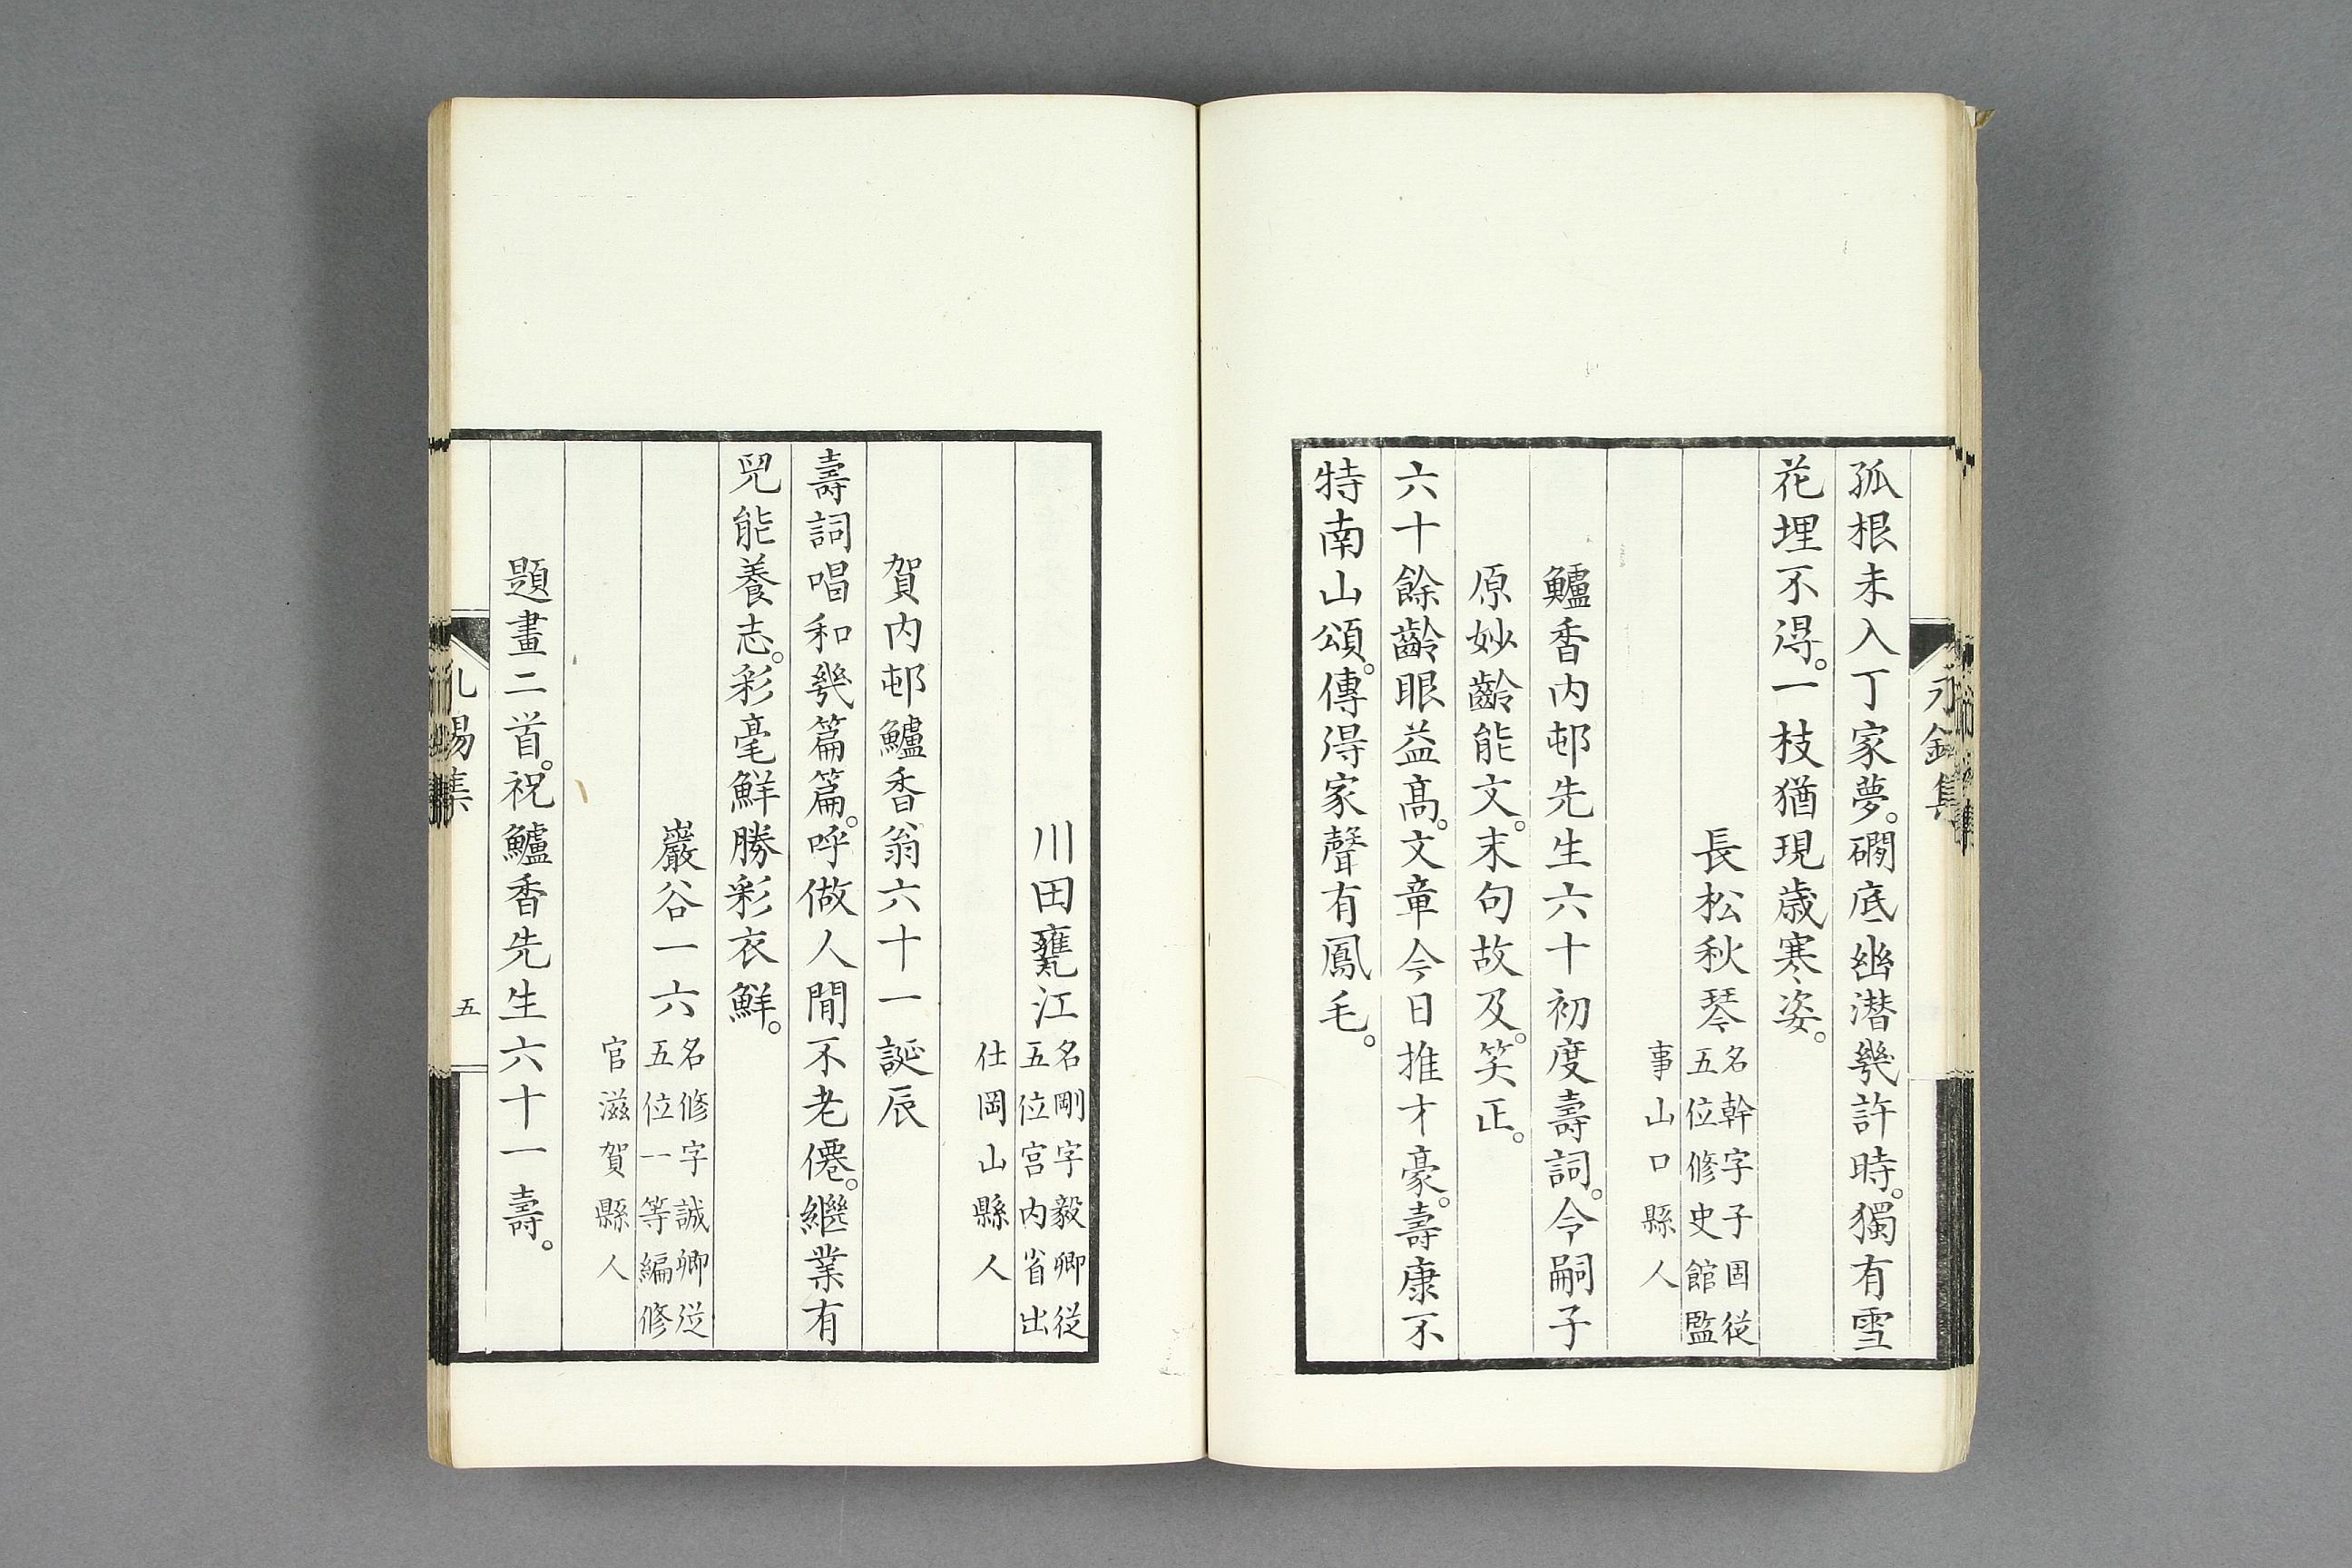 孤根未入丁家夢。磵底幽潛幾許時。獨有雪
花埋不得。一枝猶現歲寒姿。
長松秋琴
名幹字子固從
五位修史館監
事山口縣人
鱸香内邨先生六十初度壽詞。令嗣子
原妙齡能文。末句故及。笑正。
六十餘齡眼益高。文章今日推才豪。壽康不
特南山頌。傳得家聲有鳳毛。
川田甕江
名剛字毅卿従
五位宮内省出
仕岡山縣人
賀内邨鱸香翁六十一誕辰
壽詞唱和幾篇篇。呼做人間不老僊。繼業有
兒能養志。彩毫鮮勝彩衣鮮。
巖谷一六
名修字誠卿従
五位一等編修
官滋賀縣人
題畫二首。祝鱸香先生六十一壽。
五